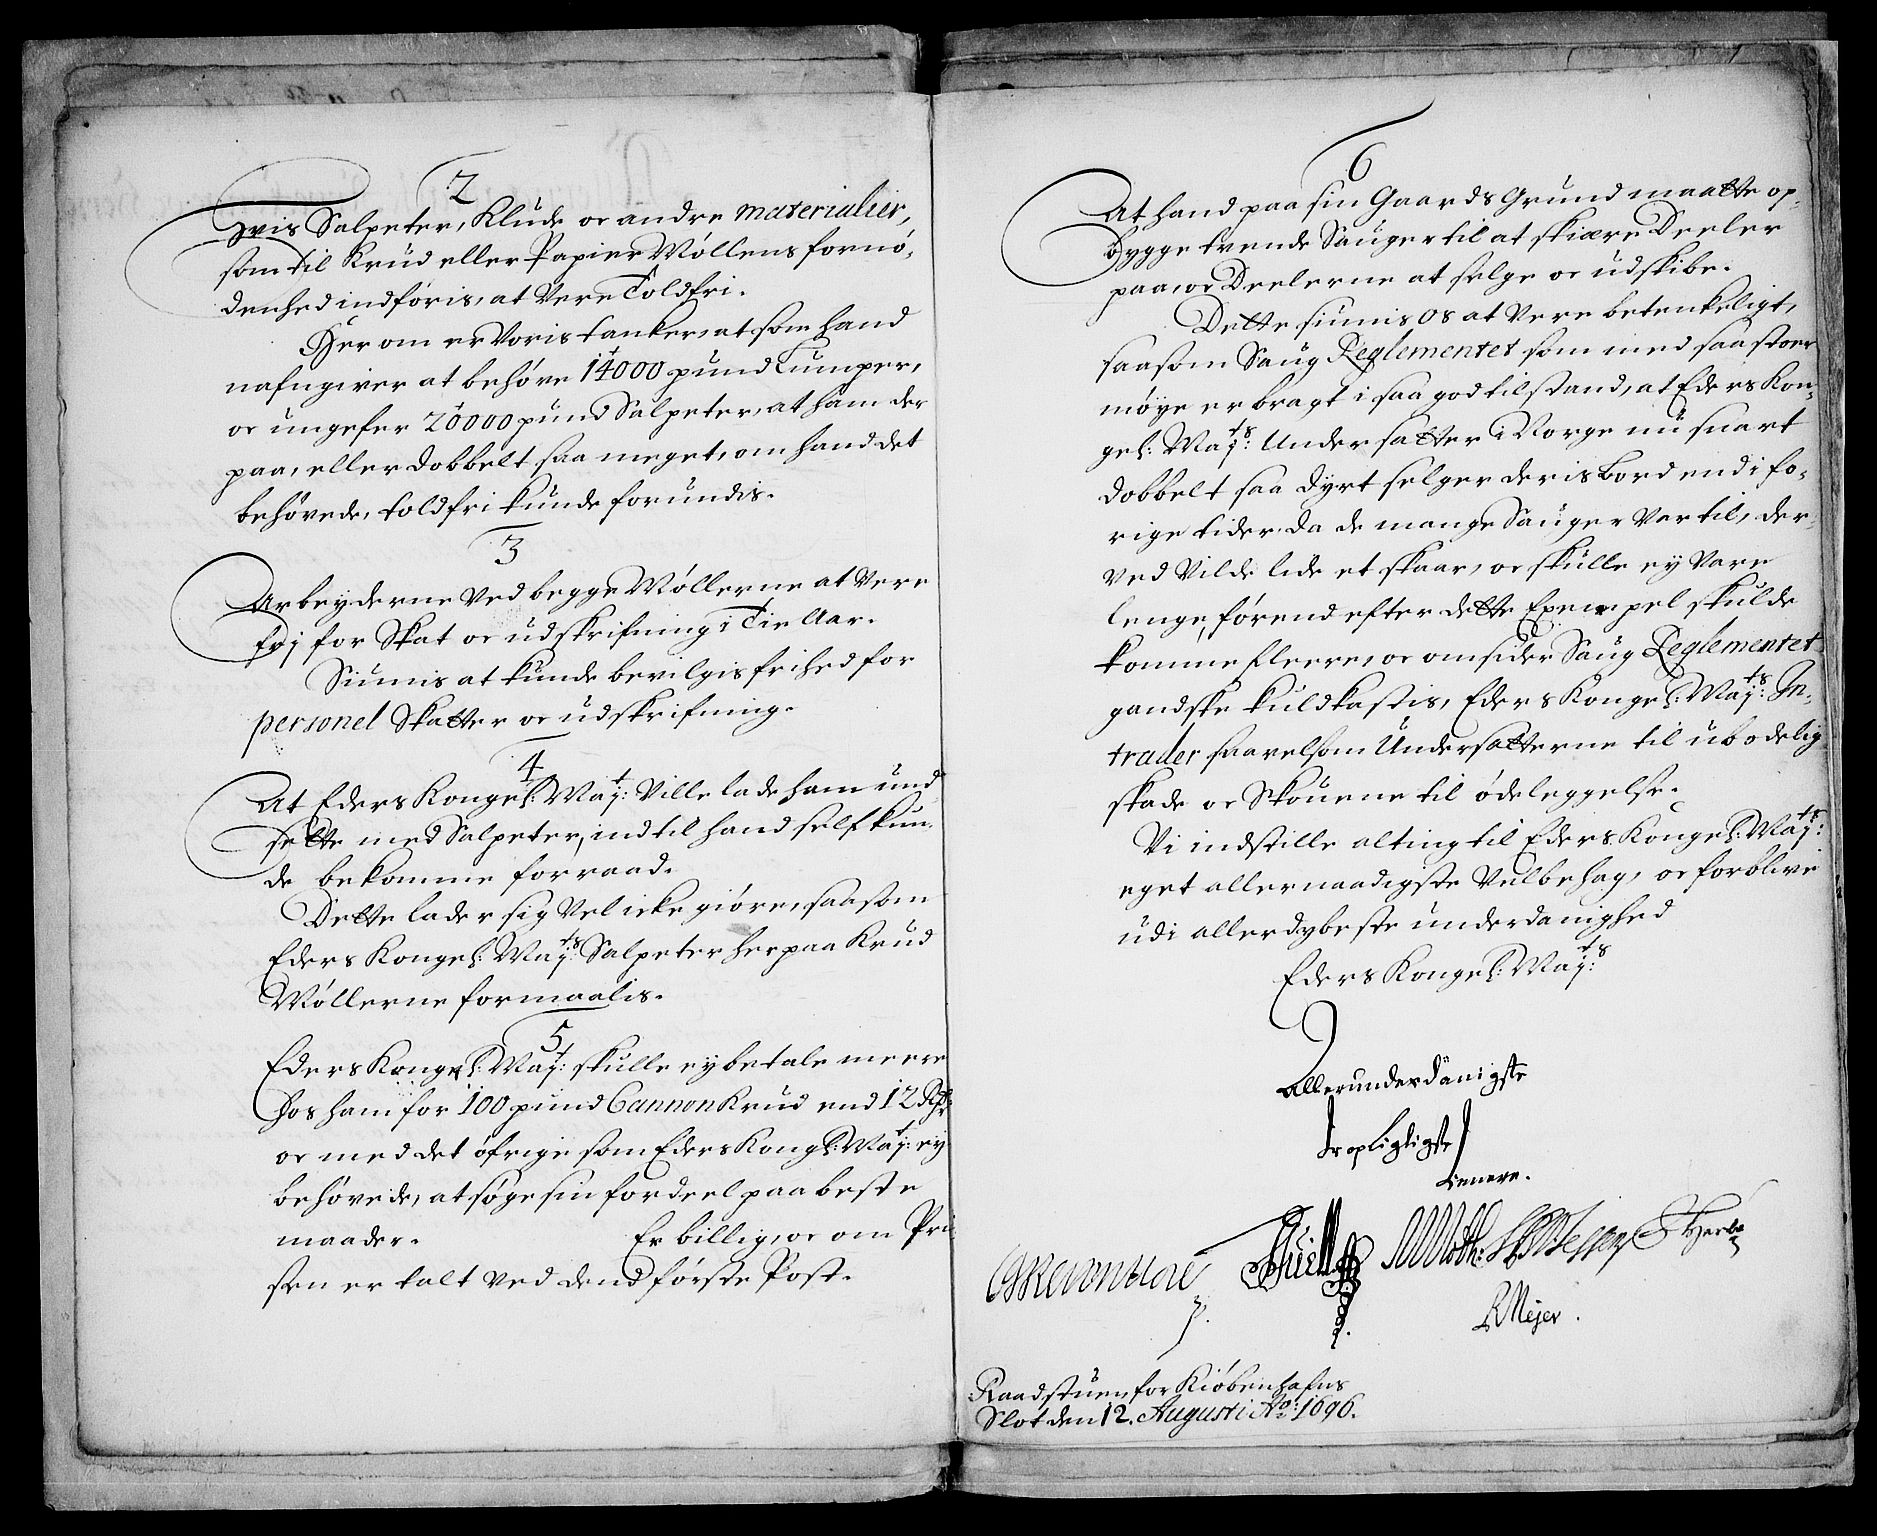 2
Hvis Salpeter, Klude oc andre materialier,
som til Krud eller Papier Møllens fornø-
denhed indføris, at Vere Toldfri.
Her om er Voris tanker, at som hand
nafngiver at behøve 14000 pund Lumper,
oc ungefer 20000 pund Salpeter, at ham der
paa, eller dobbelt saa meget, om hand det
behøvede, toldfri kunde forundis.
3
Arbeyderne ved begge Møllerne at Vere
frj for Skat oc udskrifning i Tie Aar.
Siunis at kunde bevilgis frihed for
personel Skatter oc udskrifning.
4
At Eders Kongel: Maj:t Ville lade ham und
sette med Salpeter, indtil hand self kun-
de bekomme forraad.
Dette lader sig Vel icke giøre, saasom
Eders Kongel: Maj:ts Salpeter her paa Krud
Møllerne formaalis.
5
Eders Kongel: Maj:t skulle ey betale meere
hos ham for 100 pund Cannon Krud end 12 Rdr
oc med det øfrige som Eders Kongl: Maj:t ey
behøvede, at søge sin fordeel paa beste
maader. Er billig, oc om Pri
sen er talt ved dend første Post.
6
At hand paa sin Gaards Grund maatte op-
bygge tvende Sauger til at skiære Deeler
paa, oc Deelerne at selge oc udskibe.
Dette siunis os at Vere betenkeligt,
saasom Saug Reglementet som med saa stoer
møye er bragt i saa god tilstand, at Eders Kon-
gel: Maj:ts Undersatter i Norge nu snart
dobbelt saa dyrt selger deris bord end i fo-
rige tider da de mange Sauger Var til, der-
ved Vilde lide et skaar, oc skulle ey Vare
lenge, førend efter dette Exempel skulde
komme fleere, oc omsider Saug Reglementet
gandske kuldkastis, Eders Kongel: Maj:ts In-
trader saavelsom Undersatterne til ubodelig
skade oc Skouene til ødeleggelse.
Vi indstille alting til Eders Kongel: Maj:ts
eget allernaadigste Velbehag, oc forblive
udi allerdybeste underdanighed
Eders Kongel: Maj:ts
Allerunderdanigste
tropligtigste
tienere.
Moth: Jessen
R Meyer.
Raadstuen for Kiøbenhafns
Slot den 12. Augusti Ao: 1696.